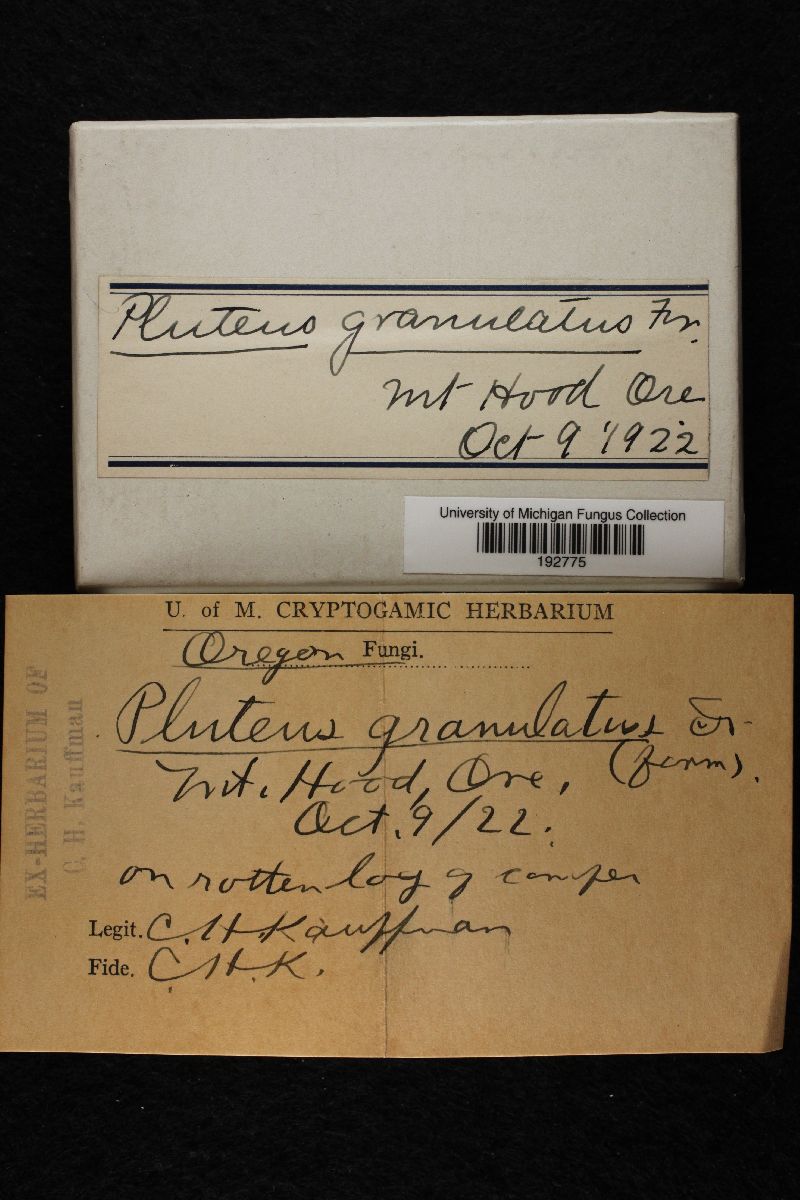 Pluteus granulatus Fr.
Mt Hood Ore
Oct 9 1922
University of Michigan Fungus Collection
192775
U. of M. CRYPTOGAMIC HERBARIUM
Oregon Fungi.
Pluteus granulatus Fr.
(form).
Mt. Hood, Ore,
Oct. 9/22.
on rotten log of conifer
Legit. C. H. Kauffman
Fide. C. H. K.
EX-HERBARIUM OF
C. H. Kauffman